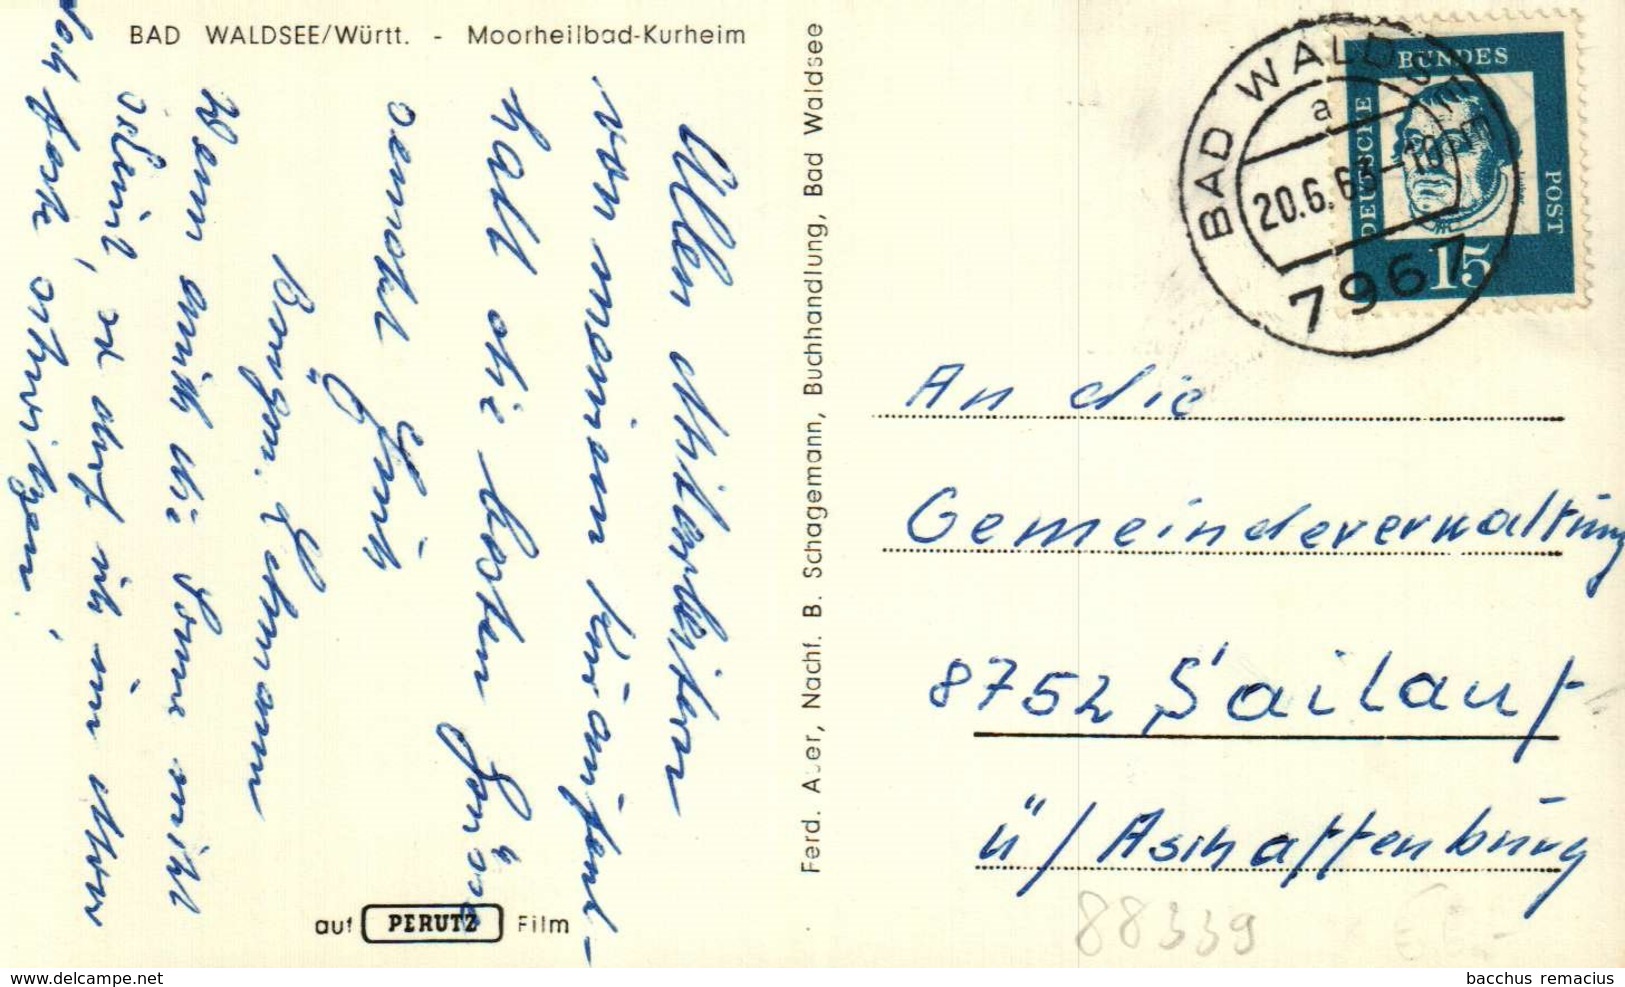 BAD WALDSEE/Württ. - Moorheilbad-Kurheim
Allen Mitarbeitern
von meinem Kuraufent-
halt die besten Grüsse
sendet Ihr
Bürgerm. Lehmann
Wenn auch die Sonne nicht
scheint, so darf ich im Moor
doch fest schwitzen!
auf PERUTZ Film
Ferd. Auer, Nachf. B. Schagemann, Buchhandlung, Bad Waldsee
BAD WALDSEE
a
20.6.63-18
7967
DEUTSCHE BUNDES POST
15
An die
Gemeindeverwaltung
8752 Sailauf
ü/Aschaffenburg
88339
www.delcampe.net
bacchus remacius